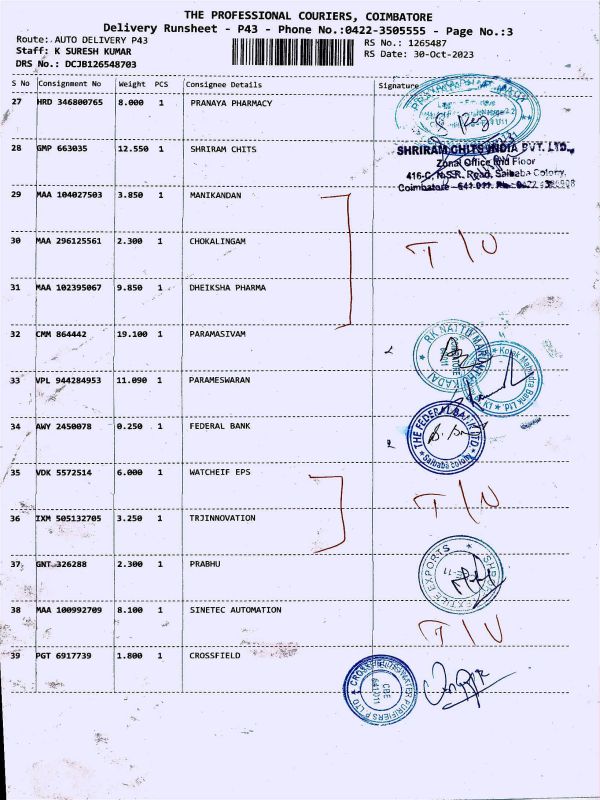 THE PROFESSIONAL COURIERS, COIMBATORE
Delivery Runsheet - P43 - Phone No.:0422-3505555 - Page No.:3
Route: AUTO DELIVERY P43
Staff: K SURESH KUMAR
DRS No.: DCJB126548703
RS No.: 1265487
RS Date: 30-Oct-2023
S No Consignment No Weight PCS Consignee Details Signature
27 HRD 346800765 8.000 1 PRANAYA PHARMACY
28 GMP 663035 12.550 1 SHRIRAM CHITS
SHRIRAM CHITS INDIA PVT. LTD.,
Zonal Office IInd Floor
416-C, N.S.R. Road, Saibaba Colony,
Coimbatore - 641 011.
29 MAA 104027503 3.850 1 MANIKANDAN
30 MAA 296125561 2.300 1 CHOKALINGAM
T/U
31 MAA 102395067 9.850 1 DHEIKSHA PHARMA
32 CMM 864442 19.100 1 PARAMASIVAM
RK NAITU MARUNTHU KADAI
33 VPL 944284953 11.090 1 PARAMESWARAN
Kotak Mahindra Bank Ltd.
34 AWY 2450078 0.250 1 FEDERAL BANK
THE FEDERAL BANK LTD
Saibaba colony
35 VDK 5572514 6.000 1 WATCHEIF EPS
T/U
36 IXM 505132705 3.250 1 TRJINNOVATION
37 GNT 326288 2.300 1 PRABHU
TEXTILE EXPORTS
38 MAA 100992709 8.100 1 SINETEC AUTOMATION
T/U
39 PGT 6917739 1.800 1 CROSSFIELD
CROSSFIELD WATER PURIFIERS P LTD
CBE
641 011